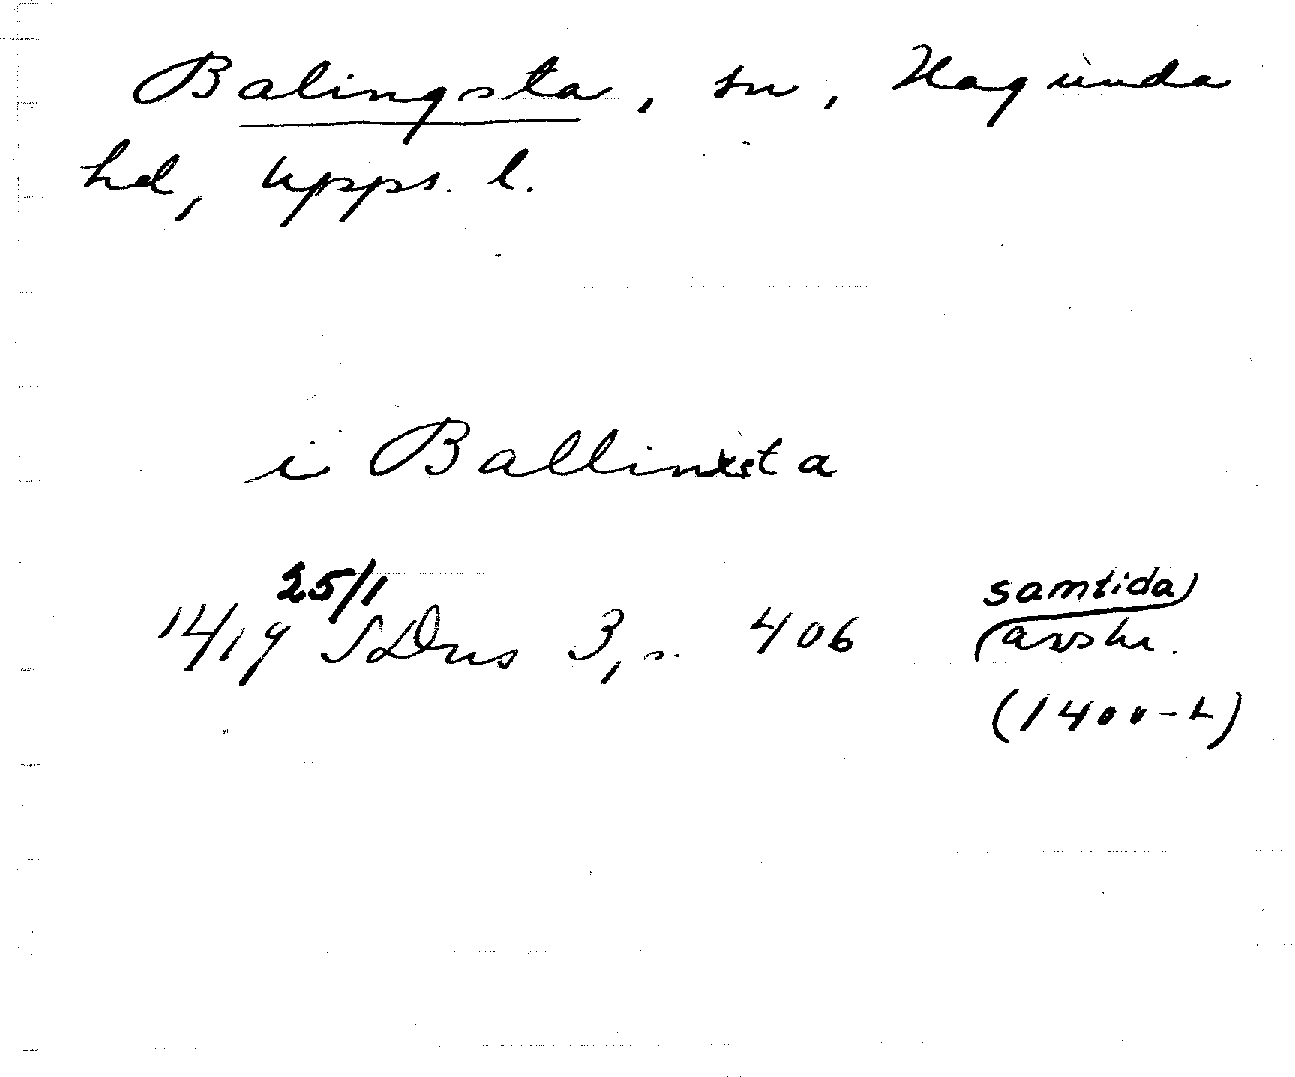 Balingsta, sn, Hagunda
hd, Upps. l.
i Ballinxsta
25/1
1419 SDns 3, s. 406
samtida
avskr.
(1400-t)